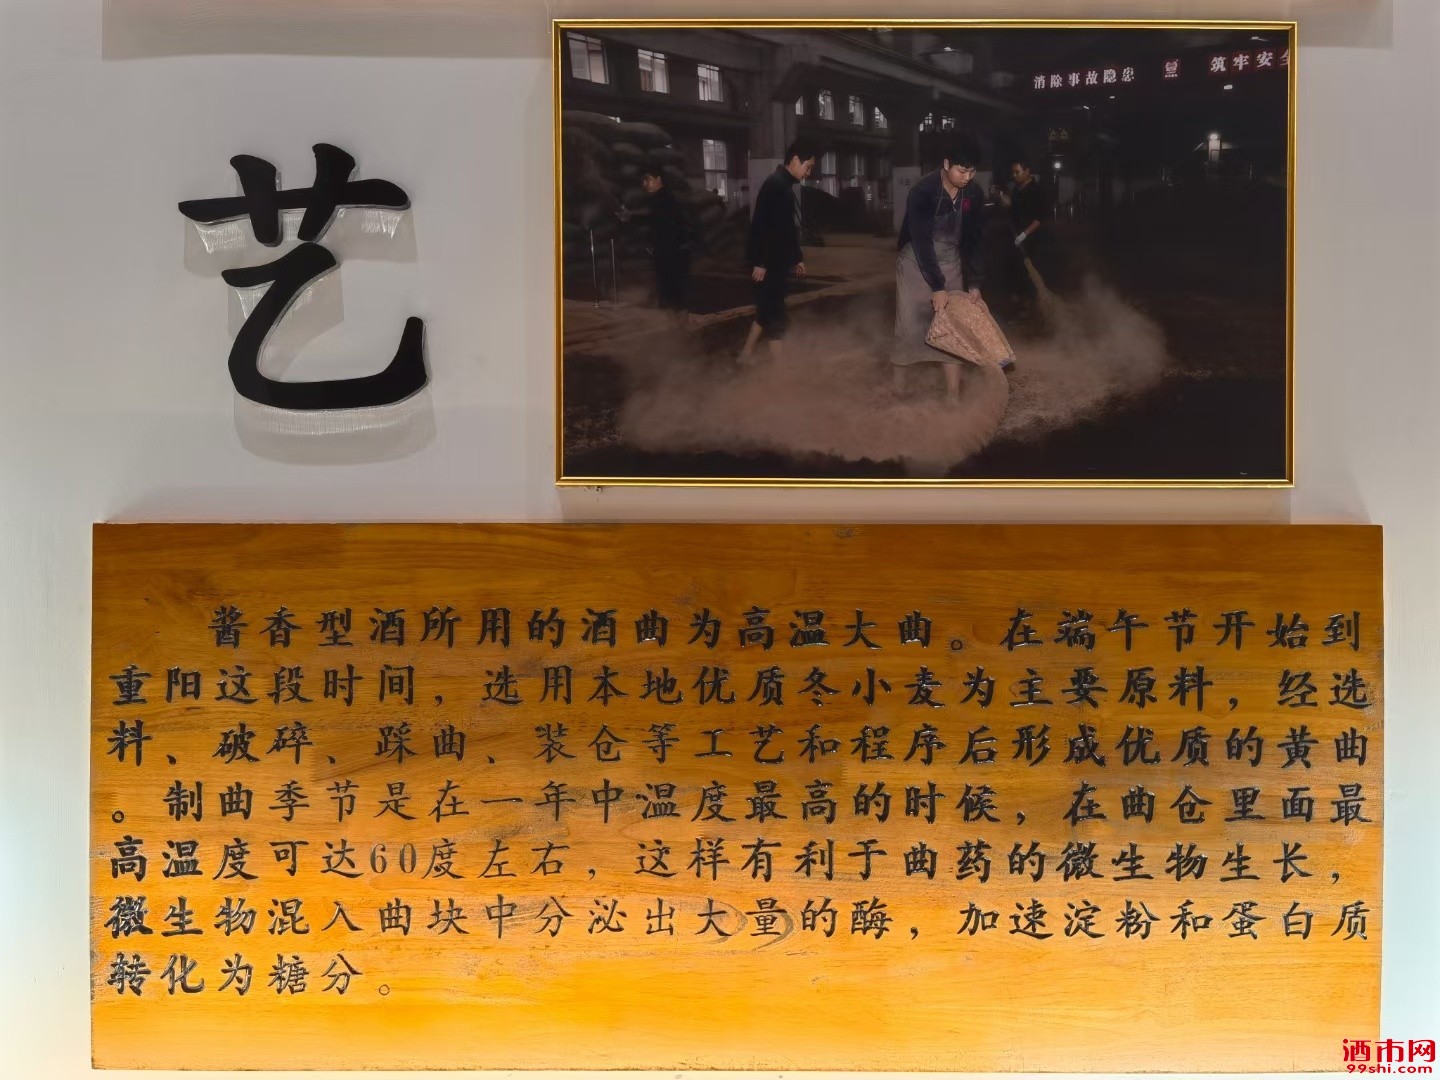 艺
消除事故隐患 筑牢安全
酱香型酒所用的酒曲为高温大曲。在端午节开始到
重阳这段时间，选用本地优质冬小麦为主要原料，经选
料、破碎、踩曲、装仓等工艺和程序后形成优质的黄曲
。制曲季节是在一年中温度最高的时候，在曲仓里面最
高温度可达60度左右，这样有利于曲药的微生物生长，
微生物混入曲块中分泌出大量的酶，加速淀粉和蛋白质
转化为糖分。
酒市网
99shi.com